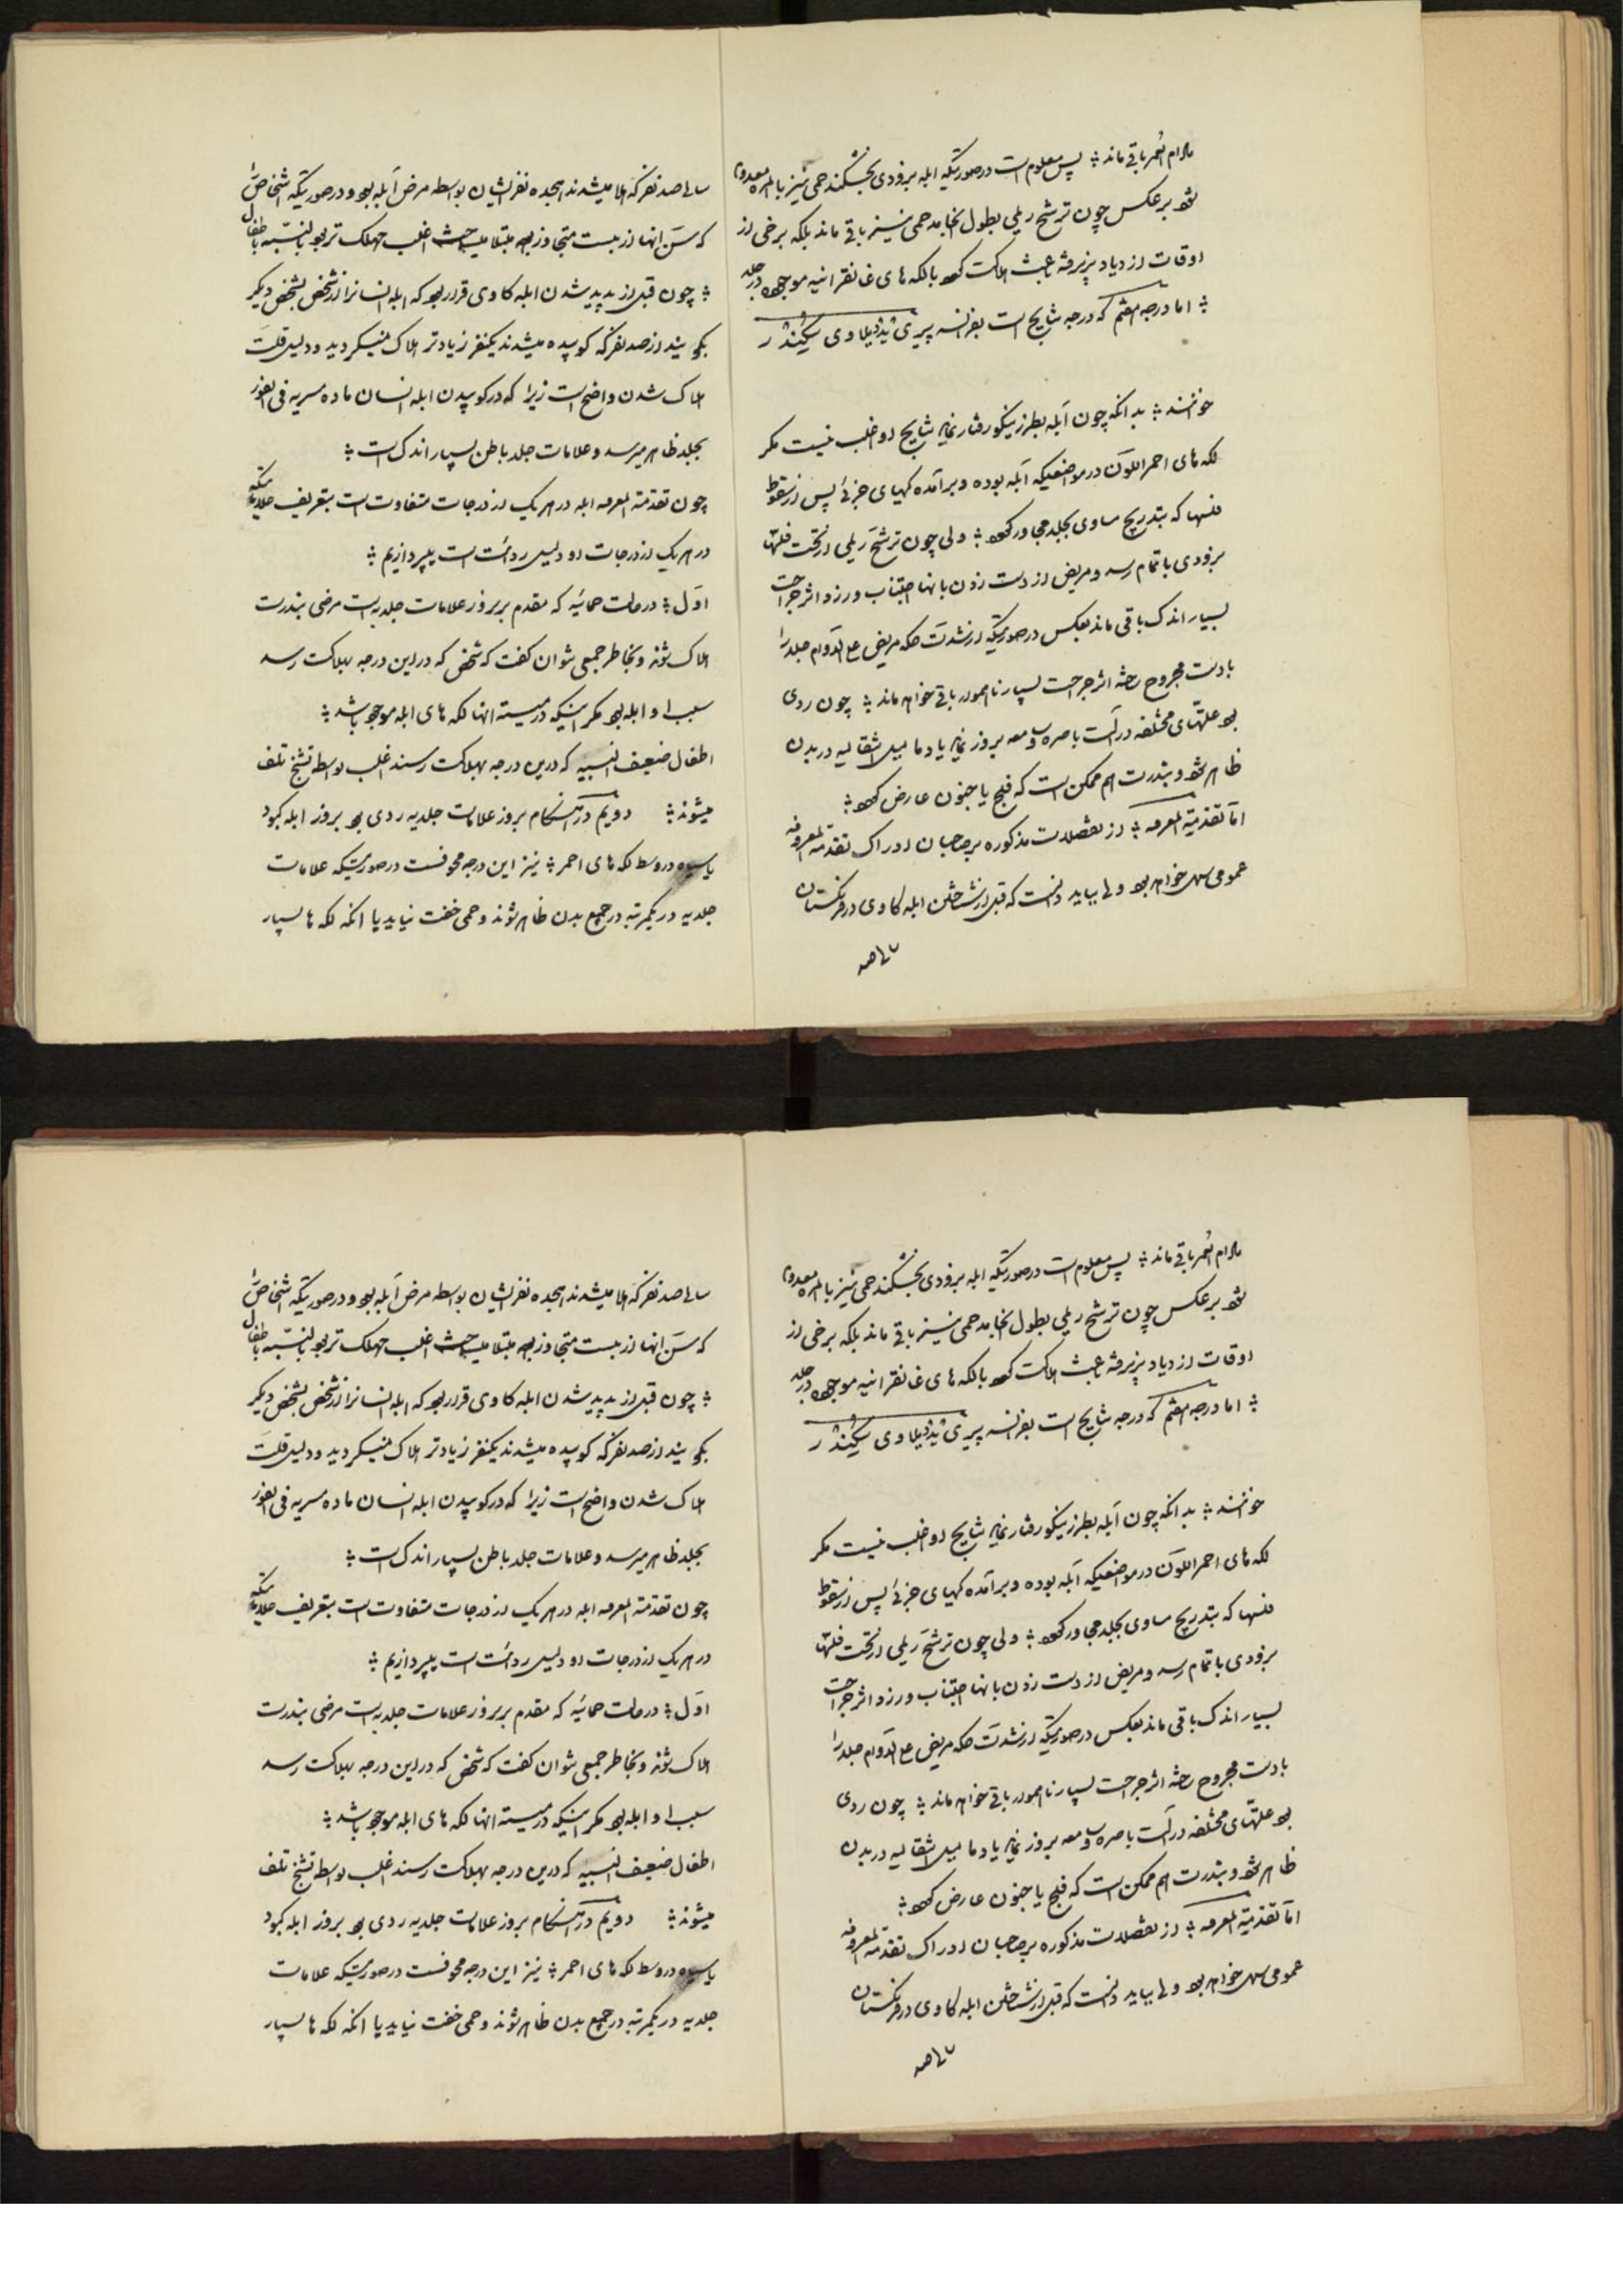 مادام العمر باقی ماند ؞ پس معلوم است در صورتیکه ابله بزودی بخشکند حمی نیز بالمره معدوم
شود برعکس چون ترشح ریمی بطول انجامد حمی نیز باقی ماند بلکه برخی از
اوقات ازدیاد پذیرفته باعث هلاکت شود با لکه های غانقرانیه موجوده در جلد
؞ اما درجه هفتم که درجه نتایج است بفرانسه پیری
خوانند ؞ بدانکه چون آبله بطرز نیکو رفتار نماید نتایج او اغلب نیست مگر
لکه های احمر اللون در مواضعیکه آبله بوده و برآمده گیهای جزئی پس از سقوط
فلسها که بتدریج مساوی بجلد مجاور شود ؞ ولی چون ترشح ریمی از تحت فلسها
بزودی باتمام رسد و مریض از دست زدن بانها اجتناب ورزد اثر جراحت
بسیار اندک باقی ماند بعکس در صورتیکه از شدت حکه مریض علی الدوام جلد را
با دست مجروح ساخته اثر جراحت بسیار ناهموار باقی خواهد ماند ؞ چون ردی
بود علتهای مختلفه در آلت باصره و سامعه بروز نماید یا دمامیل انتقالیه در بدن
ظاهر شود و بندرت هم ممکن است که فلج یا جنون عارض شود ؞
اما تقدمة المعرفه ؞ از تفصیلات مذکوره بر صاحبان ادراک تقدمة المعرفه
عمومی سهل خواهد بود ولی بباید دانست که قبل از شناختن ابله گاوی در فرنگستان
سالی صد
سالی صد نفر که هلاک میشدند هیجده نفر ایشان بواسطه مرض آبله بود و در صورتیکه اشخاص را
که سن انها از بیست متجاوز بود مبتلا میساخت اغلب مهلک تر بود بالنسبه باطفال
؞ چون قبل از پدید شدن ابله گاوی قرار بود که ابله انسان را از شخص بشخص دیگر
بکوبیند از صد نفر که کوبیده میشدند یکنفر زیادتر هلاک نمیگردید و دلیل قلت
هلاک شدن واضح است زیرا که در کوبیدن ابله انسان ماده مسریه فی الفور
بجلد ظاهر میرسد و علامات جلد باطن بسیار اندک است ؞
چون تقدمة المعرفه ابله در هر یک از درجات متفاوت است بتعریف علاماتیکه
در هر یک از درجات او دلیل ردائت است بپردازیم ؞
اول ؞ در حالت حمائیه که مقدم بر بروز علامات جلدیه است مرضی بندرت
هلاک شوند و بخاطر جمعی توان گفت که شخص که در این درجه بهلاکت رسد
سبب او ابله بود مگر اینکه در میته انها لکه های ابله موجود باشد ؞
اطفال ضعیف البنیه که درین درجه بهلاکت رسند اغلب بواسطه تشنج تلف
میشوند ؞ دویم در هنگام بروز علامات جلدیه ردی بود بروز ابله کبود
یا سیاه در وسط لکه های احمر ؞ نیز این درجه مخوفست در صورتیکه علامات
جلدیه در یکمرتبه در جمیع بدن ظاهر شوند و حمی خفت نیابد یا انکه لکه ها بسیار
مادام العمر باقی ماند ؞ پس معلوم است در صورتیکه ابله بزودی بخشکند حمی نیز بالمره معدوم
شود برعکس چون ترشح ریمی بطول انجامد حمی نیز باقی ماند بلکه برخی از
اوقات ازدیاد پذیرفته باعث هلاکت شود با لکه های غانقرانیه موجوده در جلد
؞ اما درجه هفتم که درجه نتایج است بفرانسه پیری
خوانند ؞ بدانکه چون آبله بطرز نیکو رفتار نماید نتایج او اغلب نیست مگر
لکه های احمر اللون در مواضعیکه آبله بوده و برآمده گیهای جزئی پس از سقوط
فلسها که بتدریج مساوی بجلد مجاور شود ؞ ولی چون ترشح ریمی از تحت فلسها
بزودی باتمام رسد و مریض از دست زدن بانها اجتناب ورزد اثر جراحت
بسیار اندک باقی ماند بعکس در صورتیکه از شدت حکه مریض علی الدوام جلد را
با دست مجروح ساخته اثر جراحت بسیار ناهموار باقی خواهد ماند ؞ چون ردی
بود علتهای مختلفه در آلت باصره و سامعه بروز نماید یا دمامیل انتقالیه در بدن
ظاهر شود و بندرت هم ممکن است که فلج یا جنون عارض شود ؞
اما تقدمة المعرفه ؞ از تفصیلات مذکوره بر صاحبان ادراک تقدمة المعرفه
عمومی سهل خواهد بود ولی بباید دانست که قبل از شناختن ابله گاوی در فرنگستان
سالی صد
سالی صد نفر که هلاک میشدند هیجده نفر ایشان بواسطه مرض آبله بود و در صورتیکه اشخاص را
که سن انها از بیست متجاوز بود مبتلا میساخت اغلب مهلک تر بود بالنسبه باطفال
؞ چون قبل از پدید شدن ابله گاوی قرار بود که ابله انسان را از شخص بشخص دیگر
بکوبیند از صد نفر که کوبیده میشدند یکنفر زیادتر هلاک نمیگردید و دلیل قلت
هلاک شدن واضح است زیرا که در کوبیدن ابله انسان ماده مسریه فی الفور
بجلد ظاهر میرسد و علامات جلد باطن بسیار اندک است ؞
چون تقدمة المعرفه ابله در هر یک از درجات متفاوت است بتعریف علاماتیکه
در هر یک از درجات او دلیل ردائت است بپردازیم ؞
اول ؞ در حالت حمائیه که مقدم بر بروز علامات جلدیه است مرضی بندرت
هلاک شوند و بخاطر جمعی توان گفت که شخص که در این درجه بهلاکت رسد
سبب او ابله بود مگر اینکه در میته انها لکه های ابله موجود باشد ؞
اطفال ضعیف البنیه که درین درجه بهلاکت رسند اغلب بواسطه تشنج تلف
میشوند ؞ دویم در هنگام بروز علامات جلدیه ردی بود بروز ابله کبود
یا سیاه در وسط لکه های احمر ؞ نیز این درجه مخوفست در صورتیکه علامات
جلدیه در یکمرتبه در جمیع بدن ظاهر شوند و حمی خفت نیابد یا انکه لکه ها بسیار